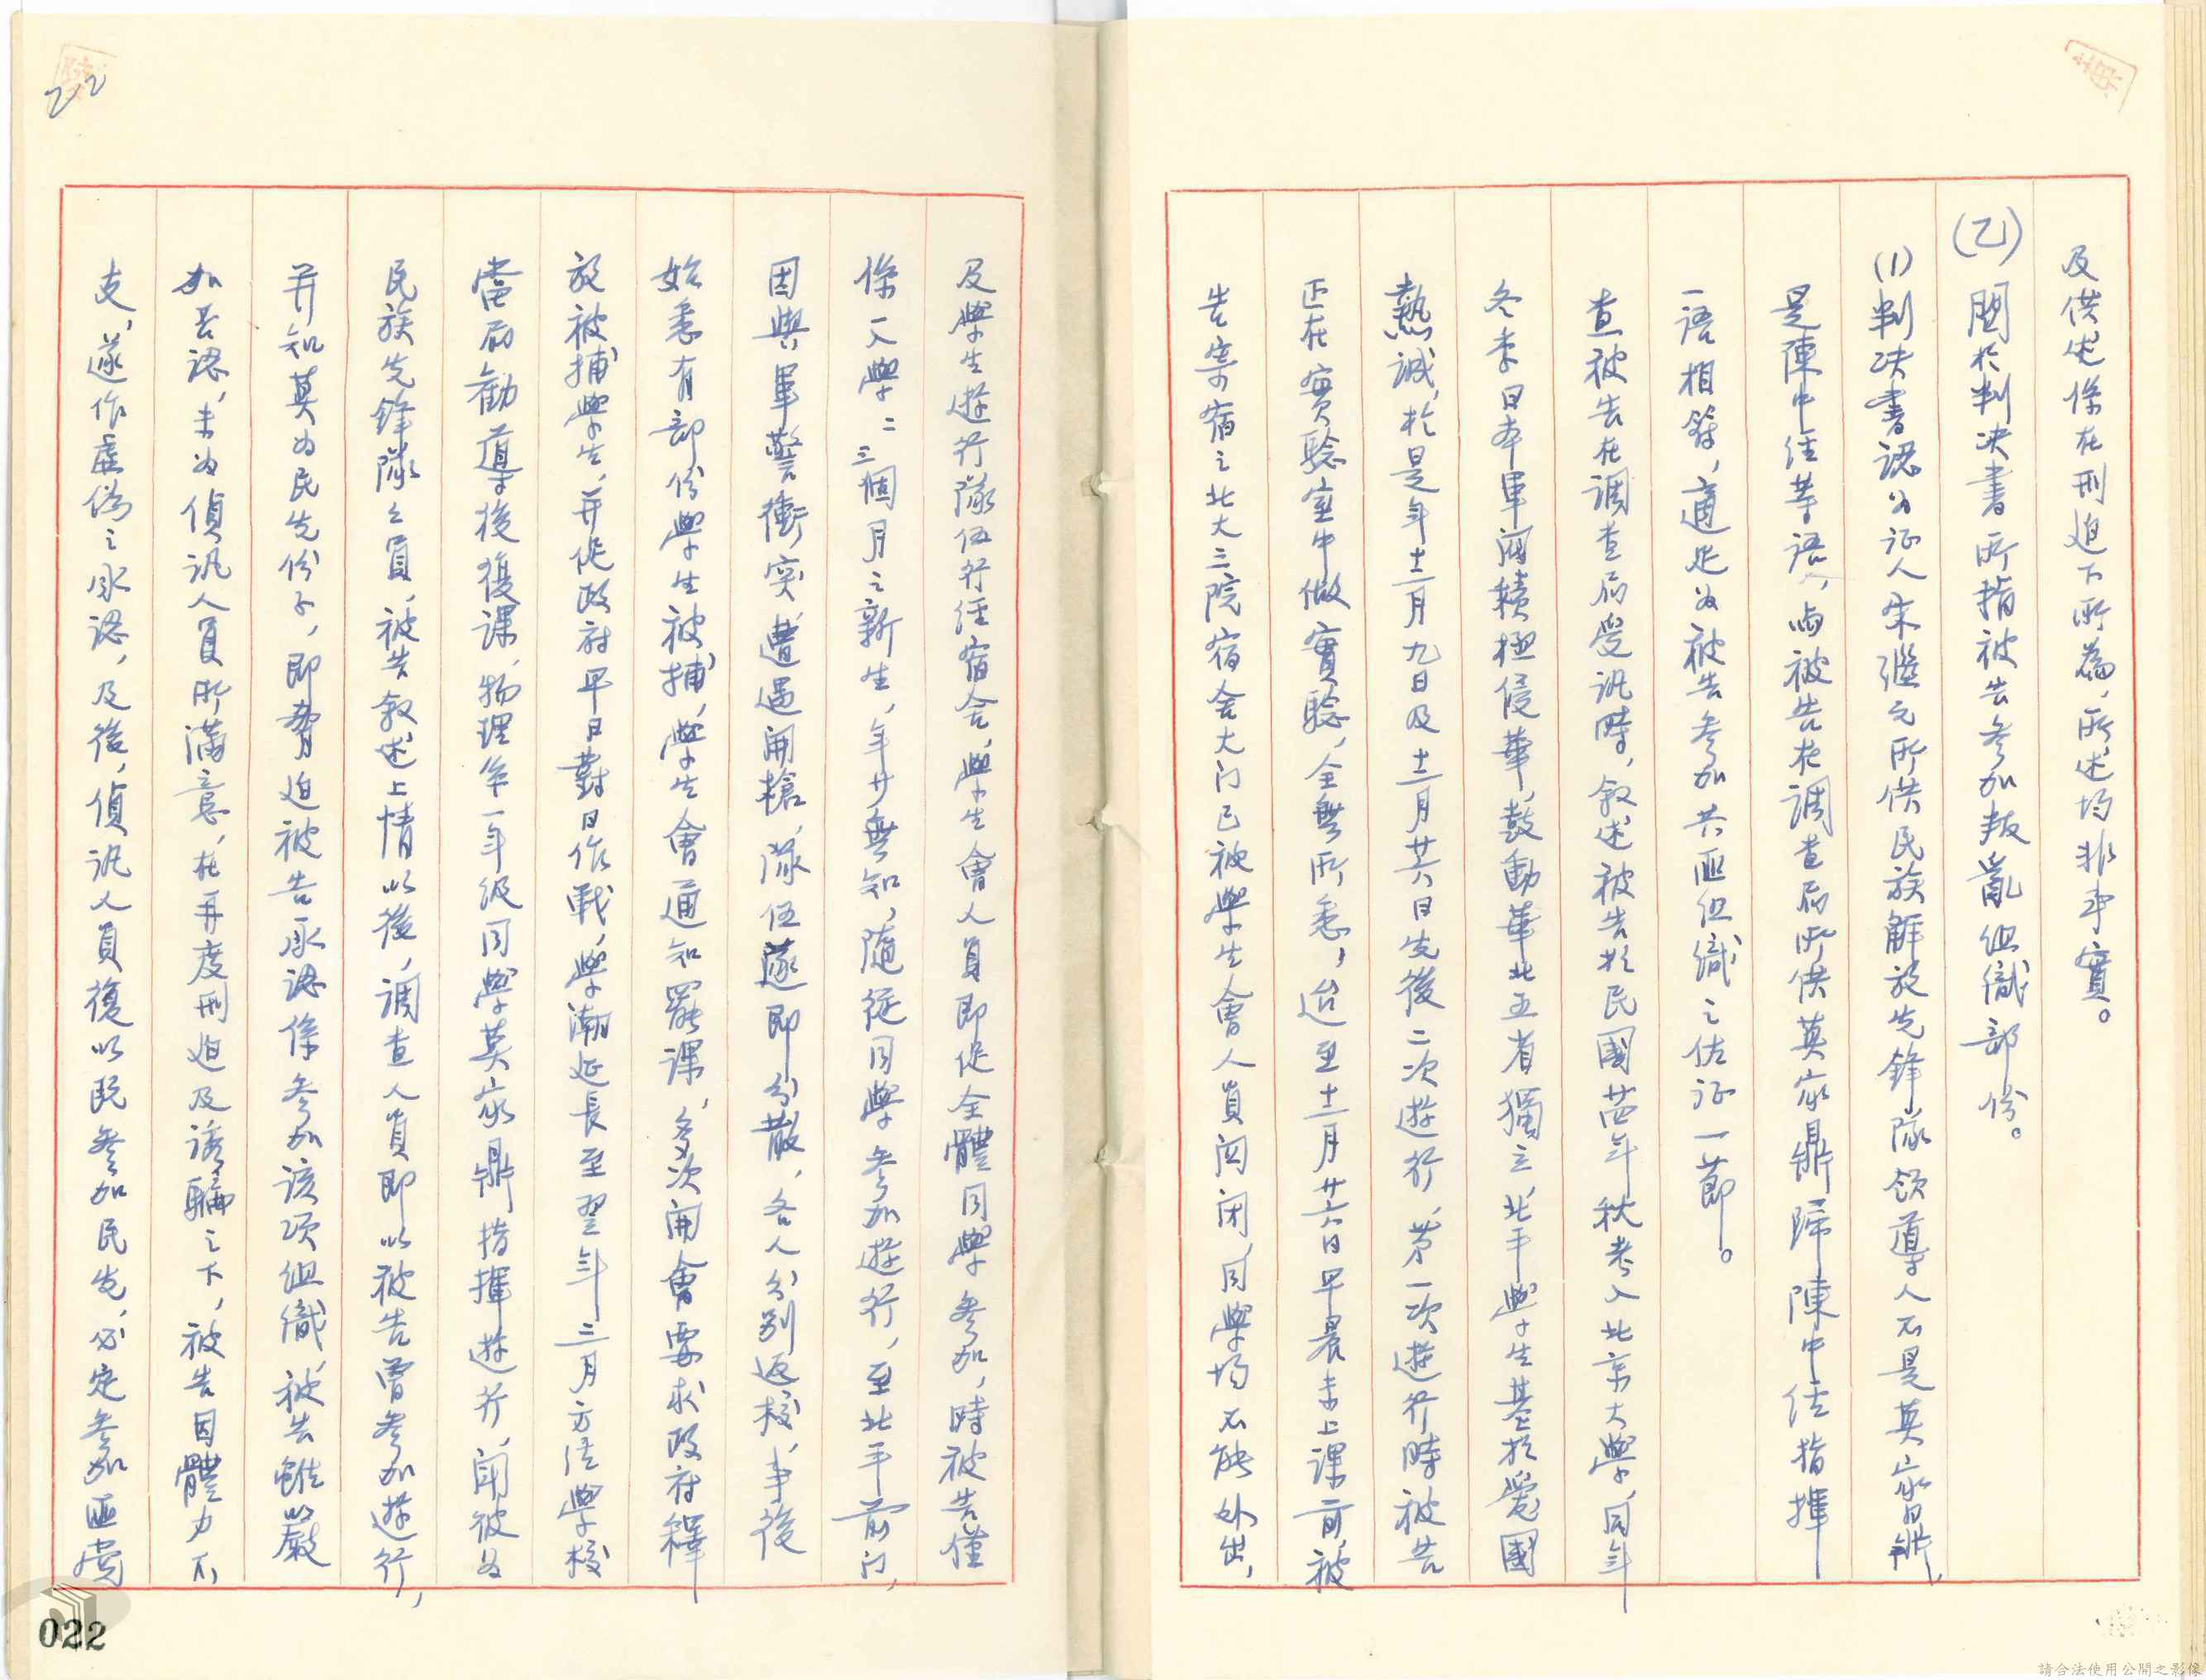 及供述係在刑迫下所為，所述均非事實。
(乙)關於判决書所指被告参加叛亂組織部份。
(1)判决書認為証人朱繼元所供民族解放先鋒隊領導人不是莫家鼎，
是陳中任等語，与被告在調查局所供莫家鼎歸陳中任指揮
一語相符，適足為被告参加共匪組織之佐証一節。
查被告在調查局受訊時，叙述被告於民國廿四年秋考入北京大學，同年
冬季日本軍閥積極侵華，鼓動華北五省獨立，北平學生基於愛國
熱誠，於是年十二月九日及十二月廿六日先後二次遊行，第一次遊行時被告
正在實驗室中做實驗，全無所悉，迨至十二月廿六日早晨未上課前，被
告寄宿之北大三院宿舍大门已被學生會人員関闭，同學均不能外出，
及學生遊行隊伍行經宿舍，學生會人員即促全體同學参加，時被告僅
係入學二三個月之新生，年少無知，隨從同學参加遊行，至北平前门，
因與軍警衝突，遭遇開槍，隊伍遂即分散，各人分别返校，事後
始悉有部份學生被捕，學生會通知罷課，多次開會要求政府釋
放被捕學生，并促政府早日對日作戰，學潮延長至翌年三月方經學校
當局勸導後復課，物理系一年级同學莫家鼎指揮遊行，聞彼為
民族先鋒隊之員，被告叙述上情以後，調查人員即以被告曾参加遊行，
并知莫为民先份子，即脅迫被告承認係参加該項組織，被告雖嚴
加否認，未为偵訊人員所滿意，在再度刑迫及誘騙之下，被告因體力不
支，遂作虛偽之承認，及後，偵訊人員復以既参加民先，必定参加匪黨
22
022
請合法使用公開之影像